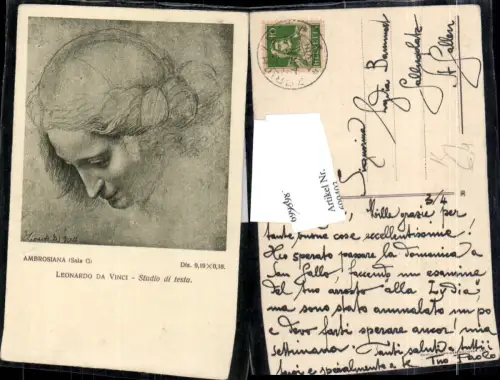 AMBROSIANA (Sala G)
Dis. 0,19×0,18.
LEONARDO DA VINCI - Studio di testa.
10
HELVETIA
Signorina
Lydia
St Gallen
Artikel Nr.
3/4
Mille grazie per
tante buone cose eccellentissime!
Ho sperato passare la domenica a
San Gallo facendo un
del tuo arrosto "alla Lydia";
ma sono stato ammalato un po
e devo farti sperare ancor! una
settimana. Tanti saluti a tutti i
tuoi e specialmente a te Tuo Paolo